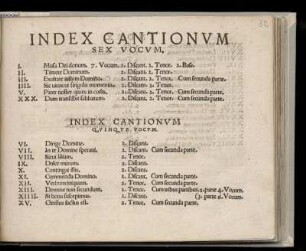 INDEX CANTIONVM
SEX VOCVM.
I. Missa Dei donum. 7. Vocum. 2. Discant. 2. Tenor. 2. Bass.
II. Timete Dominum. 2. Discant. 2. Tenor.
III. Exultate iusti in Domino. 2. Discant. 2. Tenor. Cum secunda parte.
IIII. Sic ut erant singula momenta. 2. Discant. 2. Tenor.
V. Pater noster quies in coelis. 2. Discant. 2. Tenor. Cum secunda parte.
XXX. Dum transisset sabbatum. 2. Discant. 2. Tenor. Cum secunda parte.
INDEX CANTIONVM
QVINQVE VOCVM.
VI. Dirige Domine. 2. Discant.
VII. In te Domine speravi. 2. Discant. Cum secunda parte.
VIII. 2. Tenor.
IX. Dulce 2. Discant.
X. 2. Discant.
XI. Commenda Domino. 2. Discant. Cum secunda parte.
XII. 2. Tenor. Cum secunda parte.
XIII. Domine non secundum. 2. Tenor. Cum tribus partibus, 2. parte 4. Vocum.
XIIII. 2. Discant. (3. parte 6. Vocum.
XV. Christus factus est. 2. Tenor. Cum secunda parte.